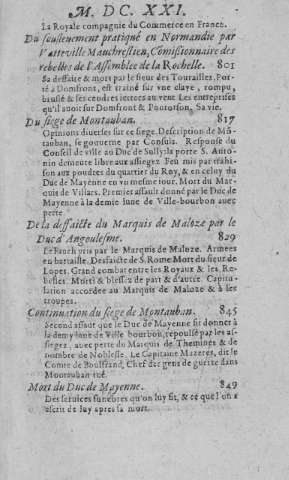 M. DC. XXI.
La Royale compagnie du Commerce en France.
Du souslenement pratiqué en Normandie par
Vatteville Mauchrestien, Comissionnaire des
rebelles de l'Assemblee de la Rochelle. 801
Sa deffaite & mort par le sieur des Tourailles, Por-
té à Domfront, est trainé sur vne claye, rompu,
bruslé & ses cendres iettees au vent Les entreprises
qu'il auoit sur Domfront & Pontorson, Sa vie.
Du siege de Montauban. 817
Opinions diuerses sur ce siege. Description de Mō-
tauban, se gouuerne par Consuls. Response du
Conseil de ville au Duc de Sully: la porte S. Anto-
nin demeure libre aux assiegez Feu mis par trahi-
son aux poudres du quartier du Roy, & en celuy du
Duc de Mayenne en vn mesme iour. Mort du Mar-
quis de Villars. Premier assault donné par le Duc de
Mayenne à la demie lune de Ville-bourbon auec
perte
De la deffaicte du Marquis de Maloze par le
Duc d'Angoulesme. 829
Le Fauch pris par le Marquis de Maloze. Armees
en bartaille. Desfaicte de S. Rome Mort du sieur de
Lopes. Grand combat entre les Royaux & les Re-
belles. Morts & blessez de part & d'autre. Capitu-
lation accordee au Marquis de Maloze & à ses
troupes.
Continuation du siege de Montauban. 845
Second assaut que le Duc de Mayenne fit donner à
la demy lune de Ville bourbon, repoulsé par les as-
siegez, auec perte du Marquis de Themines & de
nombre de Noblesse. Le Capitaine Mazeres, dit le
Comte de Boulfrand, Chef des gens de guerre dans
Montauban tué.
Mort du Duc de Mayenne. 849
Des seruices funebres qu'on luy fit, & ce que l'on e
escrit de luy apres sa mort.